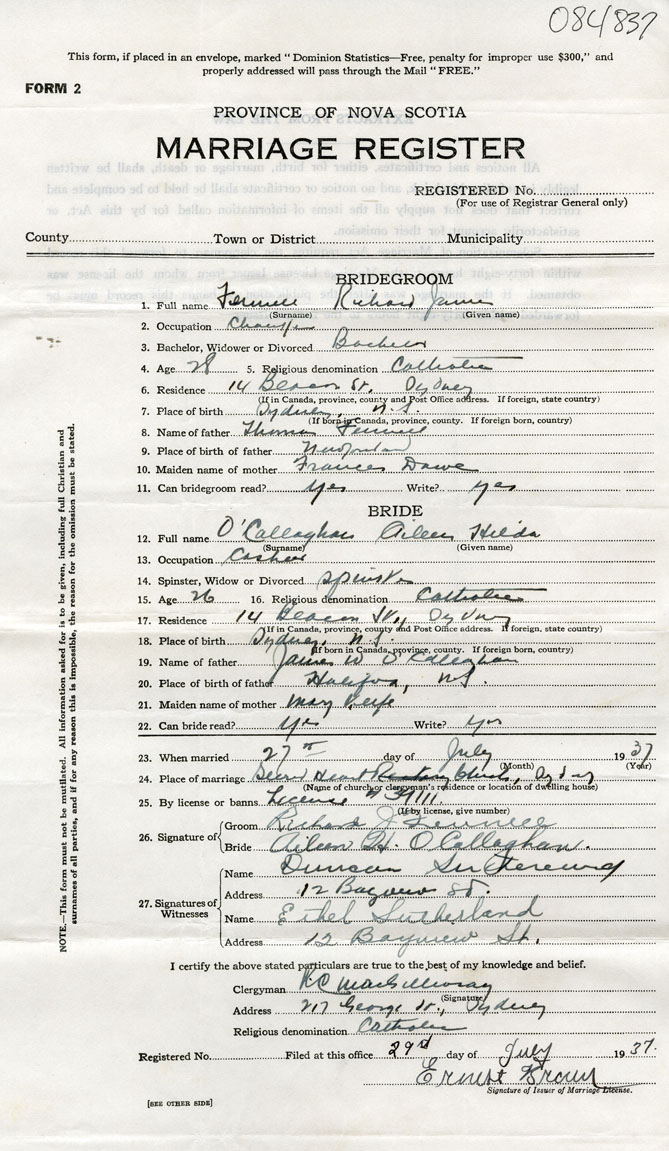 084837
This form, if placed in an envelope, marked "Dominion Statistics—Free, penalty for improper use $300," and
properly addressed will pass through the Mail "FREE."
FORM 2
PROVINCE OF NOVA SCOTIA
MARRIAGE REGISTER
REGISTERED No.
(For use of Registrar General only)
County Town or District Municipality
BRIDEGROOM
1. Full name Fennell Richard James
(Surname) (Given name)
2. Occupation
3. Bachelor, Widower or Divorced Bachelor
4. Age 28 5. Religious denomination Catholic
6. Residence 14 Beacon St., Sydney
(If in Canada, province, county and Post Office address. If foreign, state country)
7. Place of birth Sydney, N.S.
(If born in Canada, province, county. If foreign born, country)
8. Name of father Thomas Fennell
9. Place of birth of father
10. Maiden name of mother Frances Dawe
11. Can bridegroom read? yes Write? yes
BRIDE
12. Full name O'Callaghan Aileen Hilda
(Surname) (Given name)
13. Occupation Cashier
14. Spinster, Widow or Divorced Spinster
15. Age 26 16. Religious denomination Catholic
17. Residence 14 Beacon St., Sydney
(If in Canada, province, county and Post Office address. If foreign, state country)
18. Place of birth Sydney, N.S.
(If born in Canada, province, county. If foreign born, country)
19. Name of father James W O'Callaghan
20. Place of birth of father Halifax, N.S.
21. Maiden name of mother Mary Keefe
22. Can bride read? yes Write? yes
23. When married 27th day of July 1937
(Month) (Year)
24. Place of marriage Sacred Heart Church, Sydney
(Name of church or clergyman's residence or location of dwelling house)
25. By license or banns License
(If by license, give number)
26. Signature of Groom Richard J Fennell
Bride Aileen H. O'Callaghan.
27. Signatures of Witnesses Name Duncan Sutherland
Address 12 Bayview St.
Name Ethel Sutherland
Address 12 Bayview St.
I certify the above stated particulars are true to the best of my knowledge and belief.
Clergyman R C MacGillivray
(Signature)
Address 217 George St., Sydney
Religious denomination Catholic
Registered No. Filed at this office 29th day of July 1937.
Ernest Brown
Signature of Issuer of Marriage License.
[SEE OTHER SIDE]
NOTE.—This form must not be mutilated. All information asked for is to be given, including full Christian and
surnames of all parties, and if for any reason this is impossible, the reason for the omission must be stated.